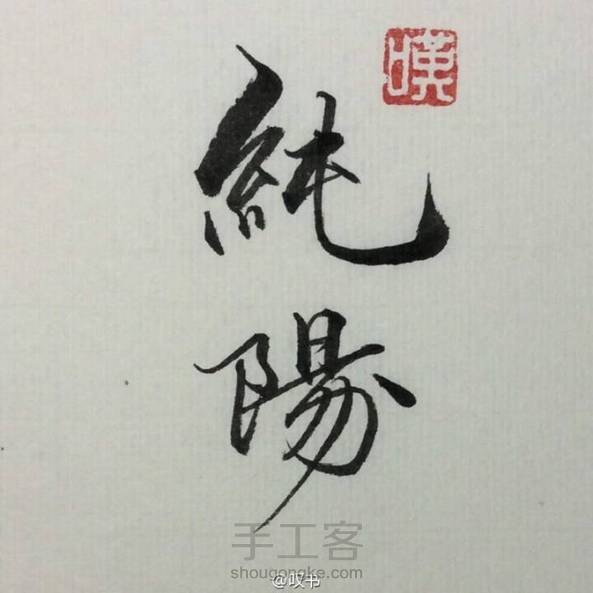 嘆
純陽
手工客
shougongke.com
@叹书